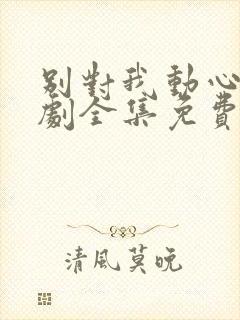 別對我動心
劇全集免費
清風莫晚